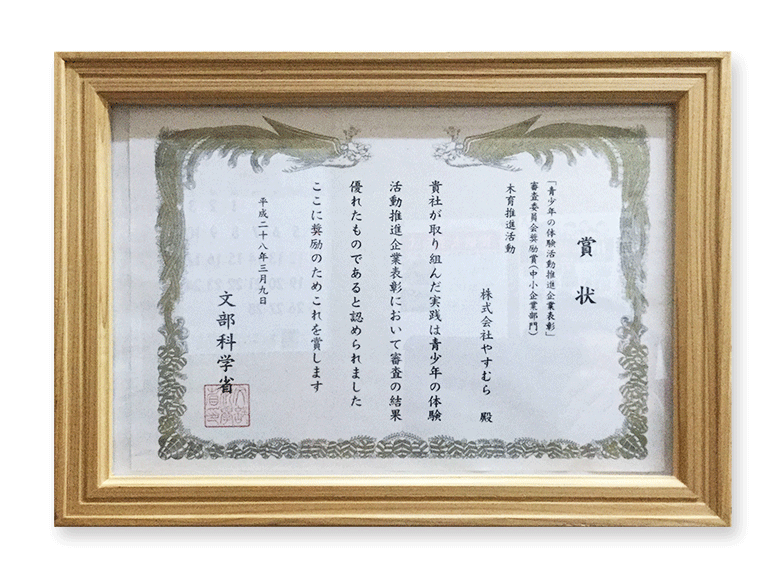 賞状
「青少年の体験活動推進企業表彰」
審査委員会奨励賞(中小企業部門)
木育推進活動
株式会社やすむら 殿
貴社が取り組んだ実践は青少年の体験
活動推進企業表彰において審査の結果
優れたものであると認められました
ここに奨励のためこれを賞します
平成二十八年三月九日
文部科学省